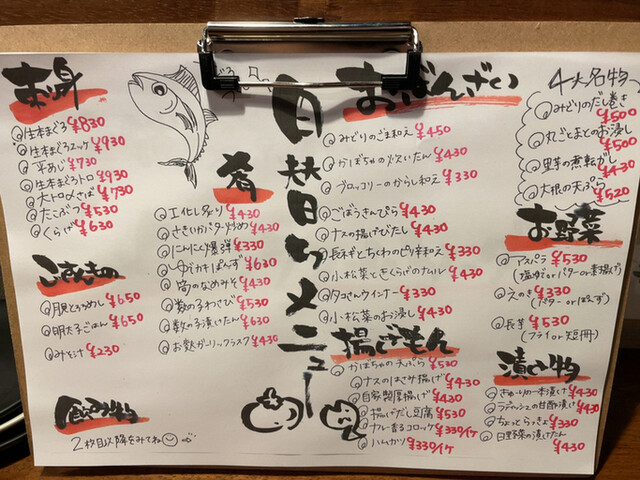 刺身
生本まぐろ ¥830
生本まぐろユッケ ¥930
平あじ ¥730
生本まぐろトロ ¥930
大トロ〆さば ¥730
たこぶつ ¥530
くらげ ¥630
ごはんもの
月見とろろめし ¥650
明太子ごはん ¥650
みそ汁 ¥230
飲み物
2枚目以降をみてね
肴
エイヒレ炙り ¥430
さきいかバター炒め ¥430
にんにく爆弾 ¥330
ゆでガキぽんず ¥630
筍のなめみそ ¥430
数の子わさび ¥530
数の子漬けたん ¥630
お麩ガーリックラスク ¥430
日替わりメニュー
おばんざい
みどりのごま和え ¥450
かぼちゃの炊いたん ¥430
ブロッコリーのからし和え ¥330
ごぼうきんぴら ¥430
ナスの揚げびたし ¥430
長ネギとちくわのピリ辛和え ¥330
小松菜ときくらげのナムル ¥430
タコさんウインナー ¥330
小松菜のお浸し ¥430
揚げもん
かぼちゃの天ぷら ¥530
ナスのはさみ揚げ ¥430
自家製厚揚げ ¥430
揚げだし豆腐 ¥530
カレー香るコロッケ ¥330/1ケ
ハムカツ ¥330/1ケ
4大名物
みどりのだし巻き ¥500
丸ごとまとのお浸し ¥500
里芋の煮転がし ¥430
大根の天ぷら ¥520
お野菜
アスパラ ¥530
(塩ゆで or バター or 素揚げ)
えのき ¥330
(バター or ぽんず)
長芋 ¥530
(フライ or 短冊)
漬け物
きゅうりの一本漬け ¥430
ラディッシュの甘酢漬け ¥430
ちょっとらっきょ ¥330
日野菜の漬けたん ¥430